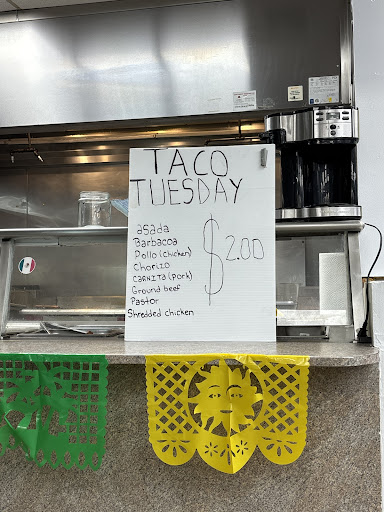 TACO
TUESDAY
asada
Barbacoa
Pollo (chicken)
Chorizo
CARNITA (pork)
Ground beef
Pastor
Shredded chicken
$2.00